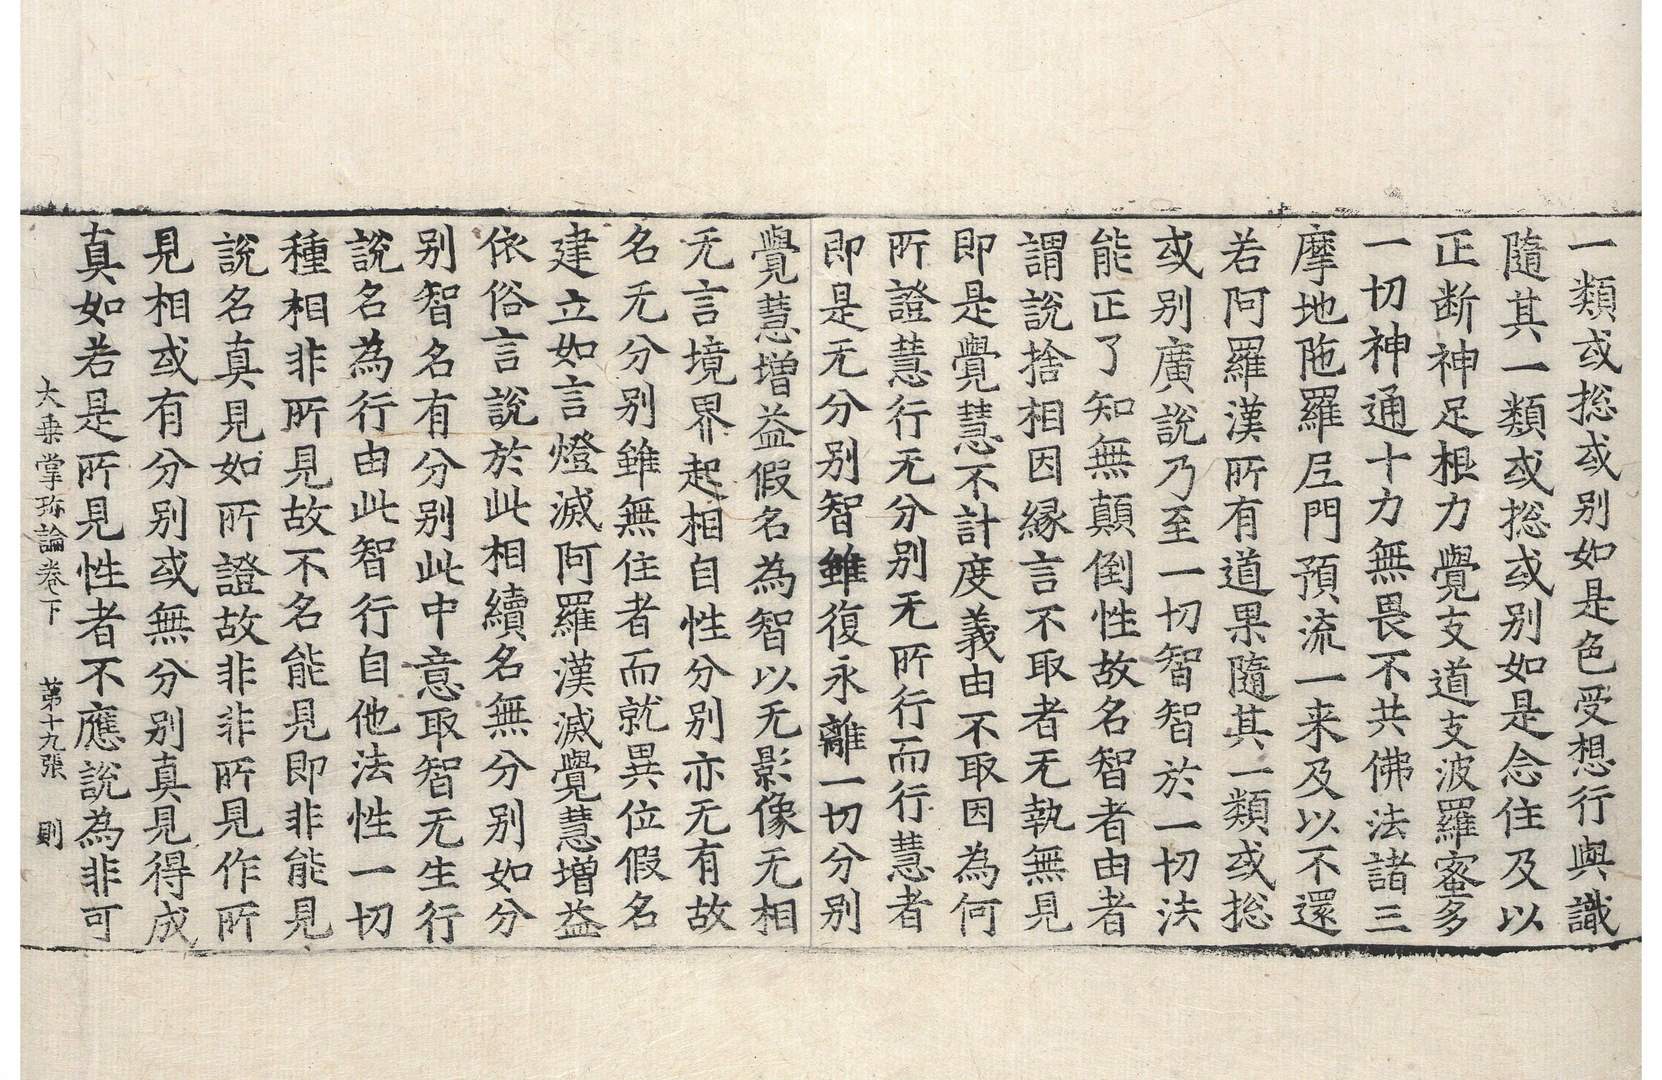 一類或捴或别如是色受想行與識
隨其一類或捴或别如是念住及以
正断神足根力覺支道支波羅蜜多
一切神通十力無畏不共佛法諸三
摩地陁羅尼門預流一来及以不還
若阿羅漢所有道果隨其一類或捴
或别廣說乃至一切智智於一切法
能正了知無顛倒性故名智者由者
謂說捨相因緣言不取者无執無見
即是覺慧不計度義由不取因為何
所證慧行无分别无所行而行慧者
即是无分别智雖復永離一切分别
覺慧增益假名為智以无影像无相
无言境界起相自性分别亦无有故
名无分别雖無住者而就異位假名
建立如言燈滅阿羅漢滅覺慧增益
依俗言說於此相續名無分别如分
别智名有分别此中意取智无生行
說名為行由此智行自他法性一切
種相非所見故不名能見即非能見
說名真見如所證故非非所見作所
見相或有分别或無分别真見得成
真如若是所見性者不應說為非可
大乗掌珎論卷下　第十九張　則